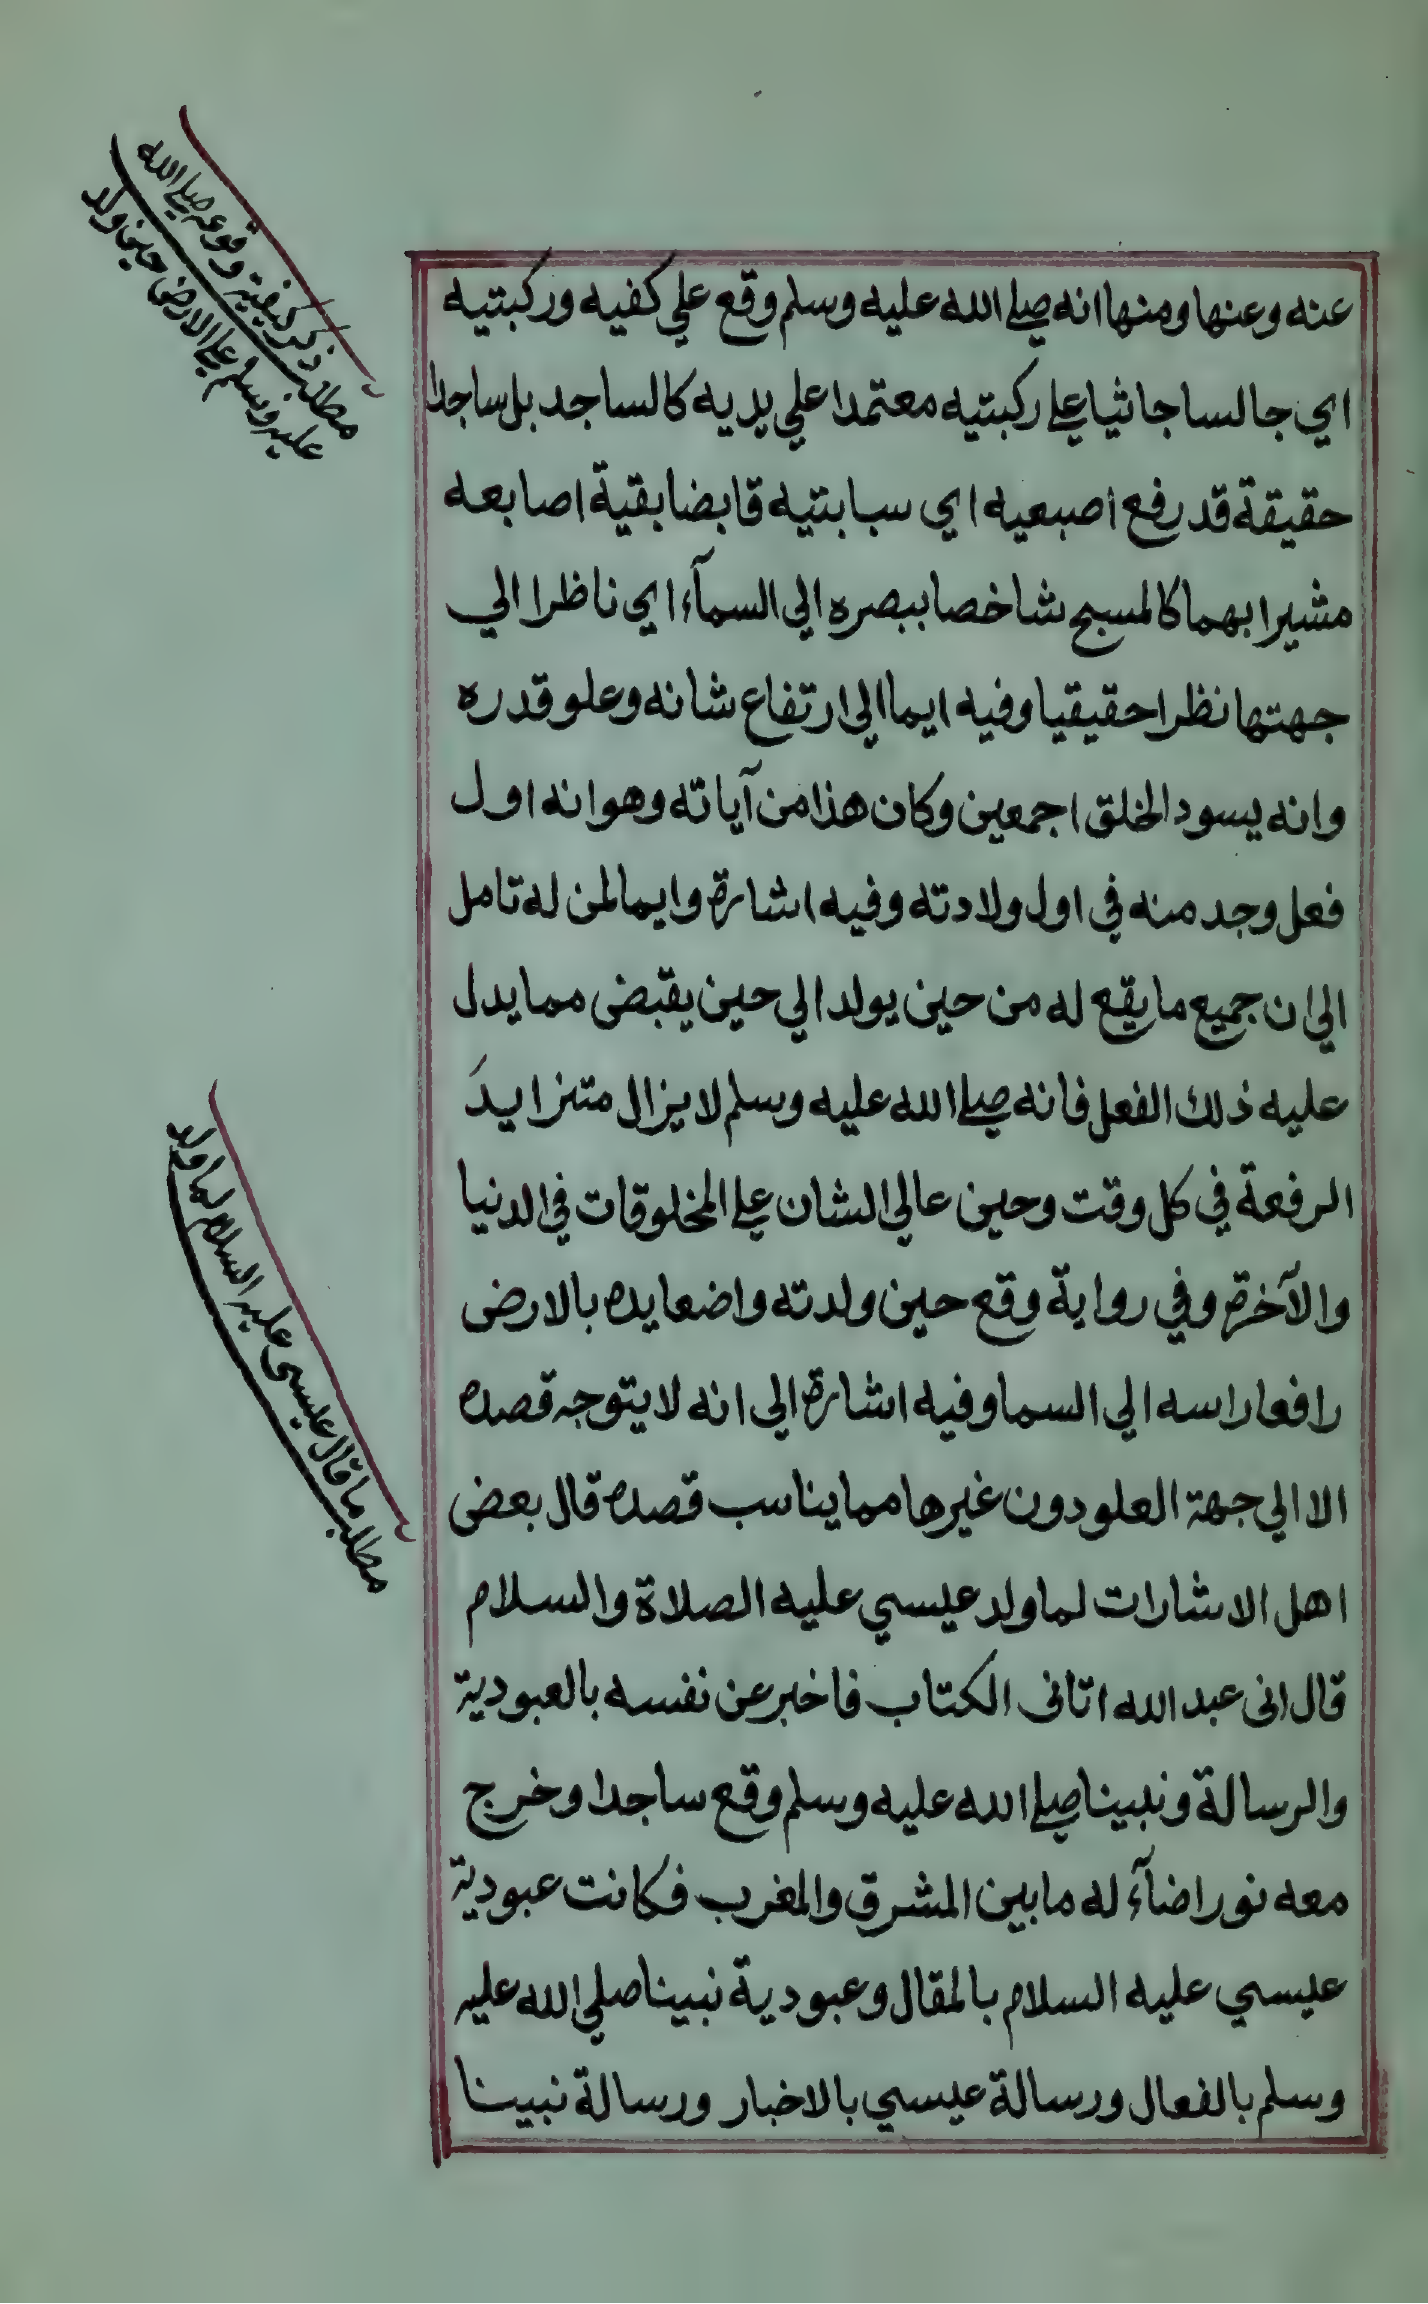 عنه وعنها ومنها انه صلى الله عليه وسلم وقع علي كفيه وركبتيه
اي جالسا جاثيا على ركبتيه معتمدا علي يديه كالساجد بل ساجدا
حقيقة قد رفع اصبعيه اي سبابتيه قابضا بقية اصابعه
مشيرا بهما كالمسبح شاخصا ببصره الي السمآء اي ناظرا الي
جهتها نظرا حقيقيا وفيه ايما الي ارتفاع شانه وعلو قدره
وانه يسود الخلق اجمعين وكان هذا من آياته وهو انه اول
فعل وجد منه في اول ولادته وفيه اشارة وايما لمن له تامل
الي ان جميع ما يقع له من حين يولد الي حين يقبض مما يدل
عليه ذلك الفعل فانه صلى الله عليه وسلم لا يزال متزايدَ
الرفعة في كل وقت وحين عالي الشان على المخلوقات في الدنيا
والآخرة وفي رواية وقع حين ولدته واضعا يده بالارض
رافعا راسه الي السما وفيه اشارة الي انه لا يتوجه قصده
الا الي جهة العلو دون غيرها مما يناسب قصده قال بعض
اهل الاشارات لما ولد عيسي عليه الصلاة والسلام
قال انى عبد الله اتانى الكتاب فاخبر عن نفسه بالعبودية
والرسالة ونبينا صلى الله عليه وسلم وقع ساجدا وخرج
معه نور اضآء له ما بين المشرق والمغرب فكانت عبودية
عيسي عليه السلام بالمقال وعبودية نبينا صلي الله عليه
وسلم بالفعال ورسالة عيسي بالاخبار ورسالة نبينا
مطلب ذكر كيفية وقوعه صلى الله
عليه وسلم على الارض حين ولد
مطلب ما قال عيسى عليه السلام لما ولد